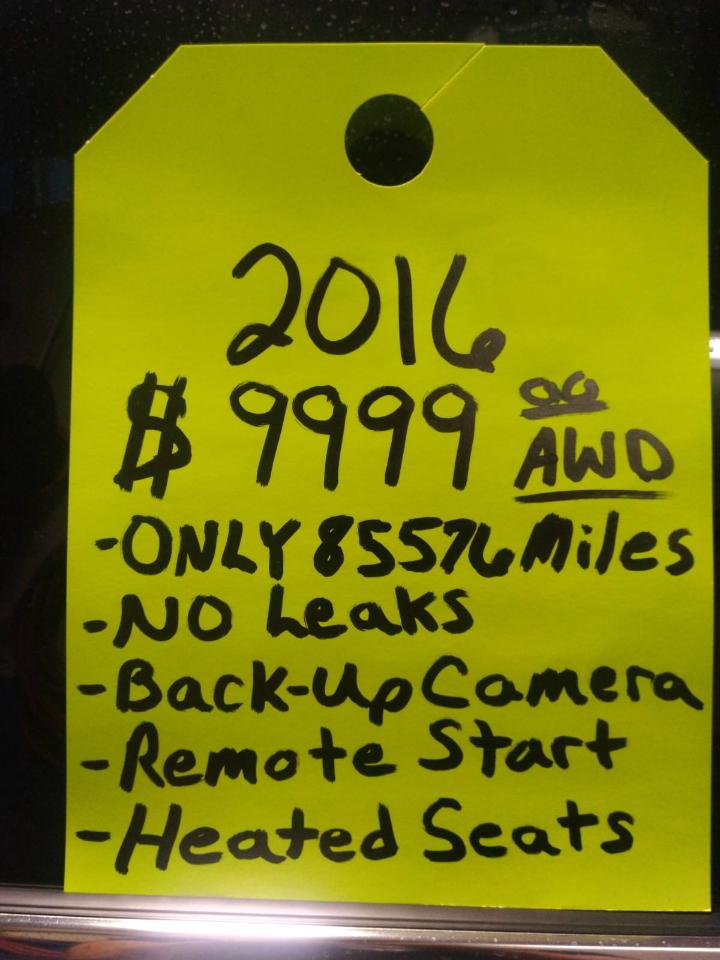 2016
$ 9999 00
AWD
-ONLY 85576 Miles
-NO Leaks
-Back-Up Camera
-Remote Start
-Heated Seats